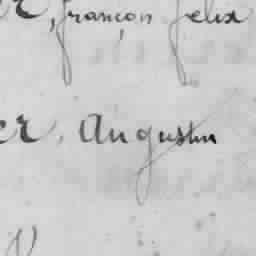 er, françois felix
er, Augustin